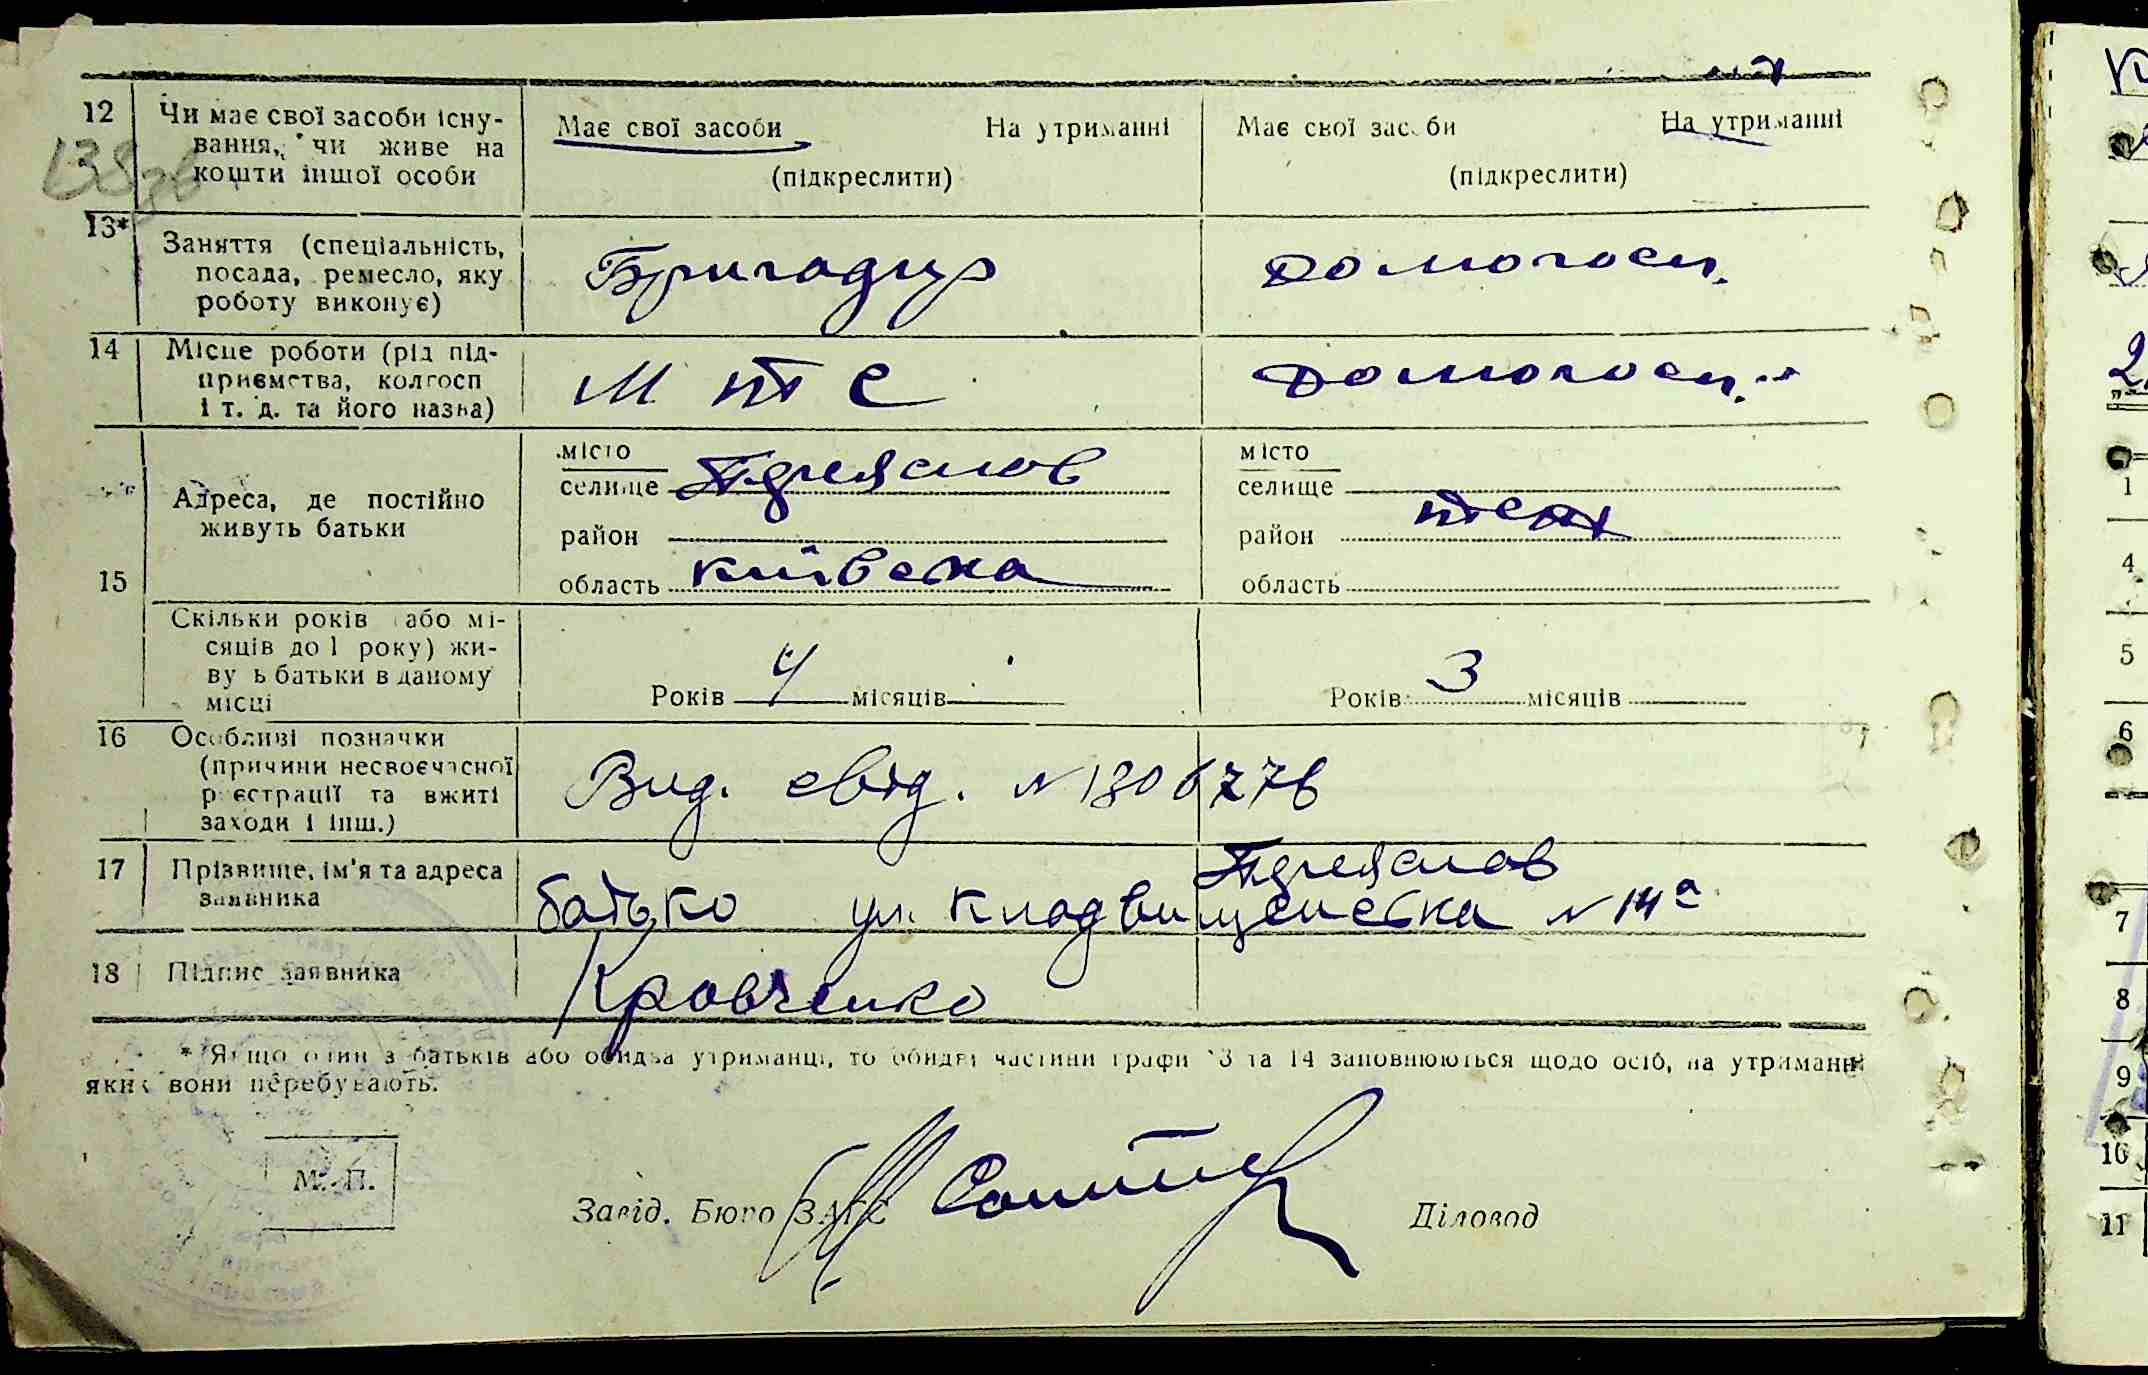 12 Чи має свої засоби існу-
вання, чи живе на
кошти іншої особи
Має свої засоби На утриманні
(підкреслити)
Має свої засоби На утриманні
(підкреслити)
13* Заняття (спеціальність,
посада, ремесло, яку
роботу виконує)
Бригадир
Домогосп.
14 Місце роботи (рід під-
приємства, колгосп
і т. д. та його назва)
М Т С
Домогосп.
15 Адреса, де постійно
живуть батьки
місто
селище Переяслов
район
область Київська
місто
селище
район
область
Скільки років (або мі-
сяців до 1 року) жи-
вуть батьки в даному
місці
Років 4 місяців
Років 3 місяців
16 Особливі позначки
(причини несвоєчасної
реєстрації та вжиті
заходи і інш.)
Вид. свід. №
17 Прізвище, ім'я та адреса
заявника
Переяслов
батько ул. № 14а
18 Підпис заявника
Кравченко
* Якщо один з батьків або обидва утриманці, то обидві частини графи 13 та 14 заповнюються щодо осіб, на утриманні
яких вони перебувають.
М. П.
Завід. Бюро ЗАГС Діловод
1
4
5
6
7
8
9
10
11